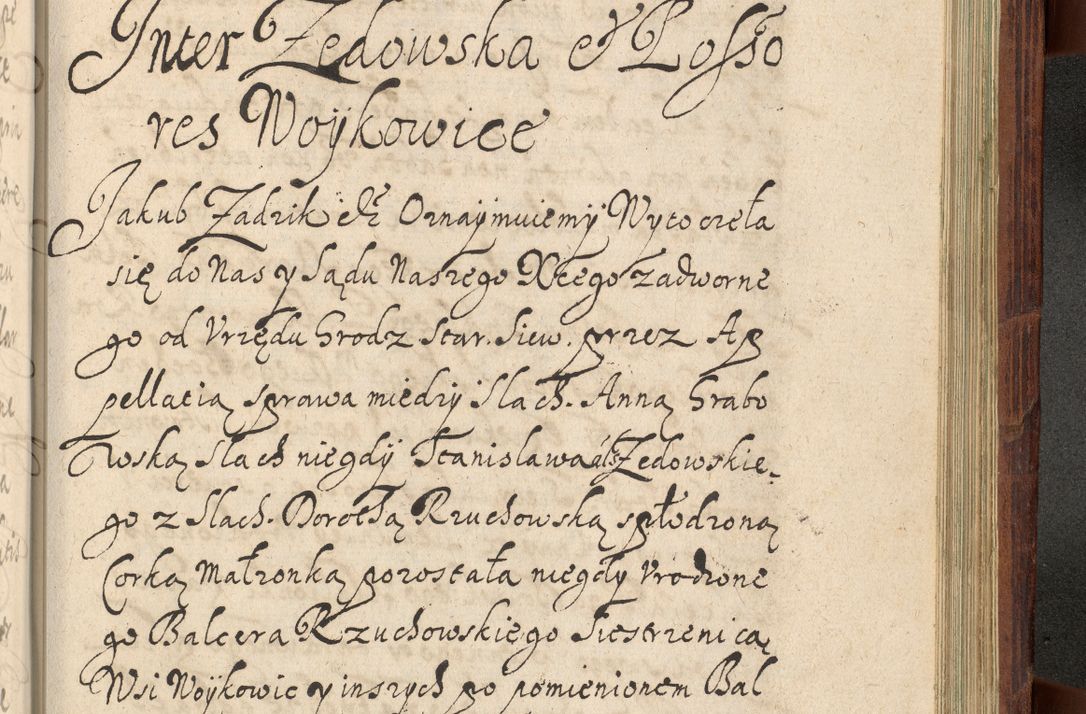 Inter Zedowska et Posso
res Woÿkowice
Jakub Zadzik etc Oznaÿmuiemÿ Wÿtoczeła
się do Nas y Sądu Naszego Xcego zadworne
go od Vrzędu Grodz Star. Siew. przez Ap
pellatią sprawa międzÿ Slach. Anną Grabo
wską Slach niegdÿ Stanisława Zedowskie
go z Slach. Dorothą Rzuchowską spłodzoną
Corką Małzonką pozostała niegdÿ Vrodzone
go Balcera Rzuchowskiego Siestrzenicą
Wsi Woÿkowic y inszÿch po pomienionem Bal